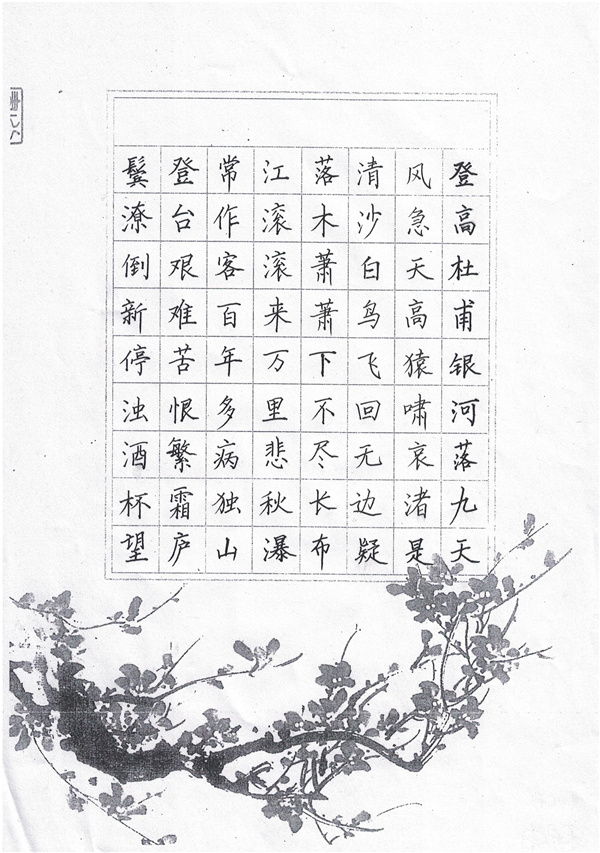 登高杜甫银河落九天
风急天高猿啸哀渚是
清沙白鸟飞回无边疑
落木萧萧下不尽长布
江滚滚来万里悲秋瀑
常作客百年多病独山
登台艰难苦恨繁霜庐
鬓潦倒新停浊酒杯望